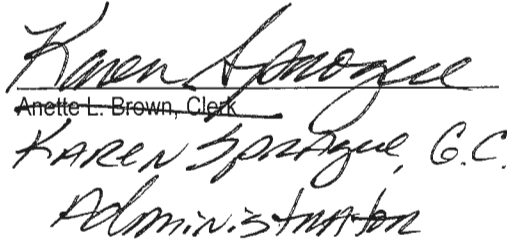 Karen Sprague
Anette L. Brown, Clerk
KAREN Sprague, G.C.
Administrator